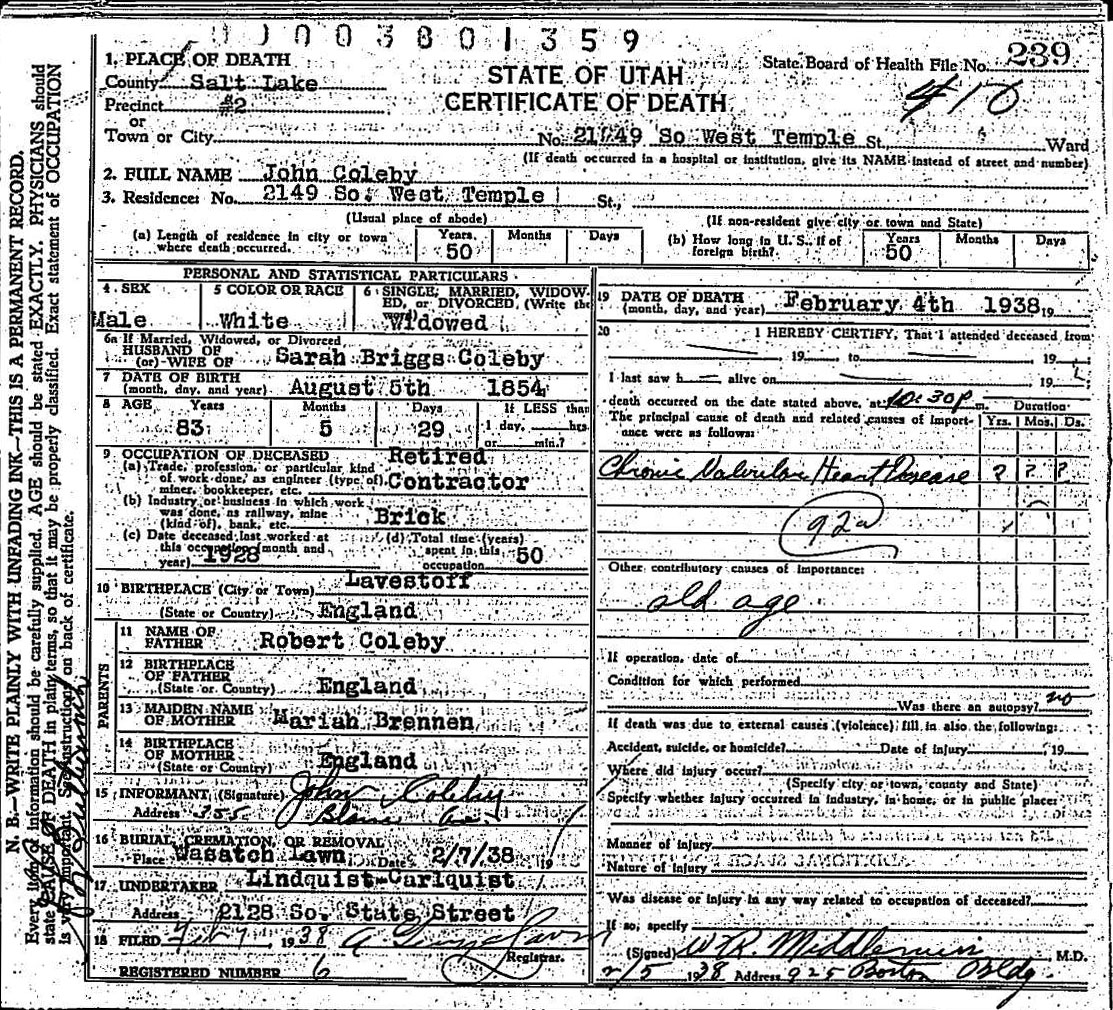 0003801359
State Board of Health File No. 239
410
1. PLACE OF DEATH
County Salt Lake
Precinct #2
or
Town or City
STATE OF UTAH
CERTIFICATE OF DEATH
No. 2149 So West Temple St., Ward
(If death occurred in a hospital or institution, give its NAME instead of street and number)
2. FULL NAME John Coleby
3. Residence: No. 2149 So. West Temple St.,
(Usual place of abode)
(If non-resident give city or town and State)
(a) Length of residence in city or town where death occurred. Years 50 Months Days
(b) How long in U. S., if of foreign birth? Years 50 Months Days
PERSONAL AND STATISTICAL PARTICULARS
4. SEX
Male
5 COLOR OR RACE
White
6 SINGLE, MARRIED, WIDOWED, or DIVORCED, (Write the word)
Widowed
6a If Married, Widowed, or Divorced
HUSBAND OF
(or) WIFE OF Sarah Briggs Coleby
7 DATE OF BIRTH
(month, day, and year) August 5th 1854
8 AGE Years Months Days If LESS than
83 5 29 1 day, hrs.
or min.?
9 OCCUPATION OF DECEASED Retired
(a) Trade, profession, or particular kind
of work done, as engineer (type of) Contractor
miner, bookkeeper, etc.
(b) Industry or business in which work
was done, as railway, mine
(kind of), bank, etc. Brick
(c) Date deceased last worked at
this occupation (month and
year) 1928
(d) Total time (years)
spent in this
occupation 50
10 BIRTHPLACE (City or Town) Lavestoff
(State or Country) England
PARENTS
11 NAME OF
FATHER Robert Coleby
12 BIRTHPLACE
OF FATHER
(State or Country) England
13 MAIDEN NAME
OF MOTHER Mariah Brennen
14 BIRTHPLACE
OF MOTHER
(State or Country) England
15 INFORMANT (Signature) John Coleby
Address 355 Blaine Av.
16 BURIAL, CREMATION, OR REMOVAL
Place Wasatch Lawn Date 2/7/38 19
17 UNDERTAKER Lindquist-Carlquist
Address 2128 So. State Street
18 FILED Feb 7 1938
Registrar.
REGISTERED NUMBER 6
19 DATE OF DEATH
(month, day, and year) February 4th 1938 19
20 I HEREBY CERTIFY, That I attended deceased from
19 to 19
I last saw h alive on 19
death occurred on the date stated above, at 10:30 P. m.
The principal cause of death and related causes of importance were as follows:
Duration
Yrs. Mos. Ds.
Chronic Valvular Heart Disease ? ? ?
92a
Other contributory causes of importance:
old age
If operation, date of
Condition for which performed
Was there an autopsy? no
If death was due to external causes (violence) fill in also the following:
Accident, suicide, or homicide? Date of injury 19
Where did injury occur?
(Specify city or town, county and State)
Specify whether injury occurred in industry, in home, or in public place:
Manner of injury
Nature of injury
Was disease or injury in any way related to occupation of deceased?
If so, specify
(Signed) W. R. M.D.
2/5 1938 Address 925 Boston Bldg.
N. B.—WRITE PLAINLY WITH UNFADING INK—THIS IS A PERMANENT RECORD.
Every item of information should be carefully supplied. AGE should be stated EXACTLY. PHYSICIANS should
state CAUSE OF DEATH in plain terms, so that it may be properly classified. Exact statement of OCCUPATION
is very important. See instructions on back of certificate.